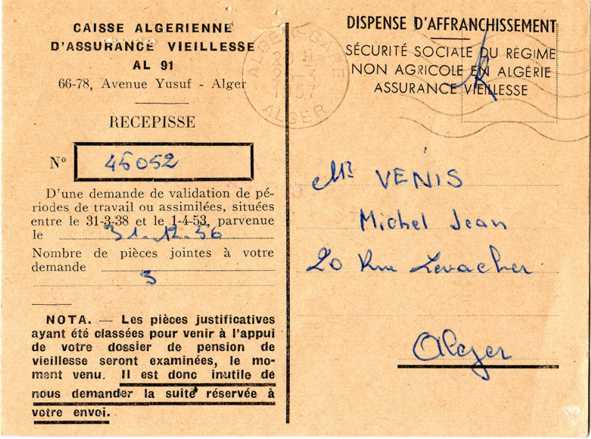 CAISSE ALGERIENNE
D'ASSURANCE VIEILLESSE
AL 91
66-78, Avenue Yusuf - Alger
RECEPISSE
N° 45052
D'une demande de validation de pé-
riodes de travail ou assimilées, situées
entre le 31-3-38 et le 1-4-53, parvenue
le 31-12-56
Nombre de pièces jointes à votre
demande 3
NOTA. — Les pièces justificatives
ayant été classées pour venir à l'appui
de votre dossier de pension de
vieillesse seront examinées, le mo-
ment venu. Il est donc inutile de
nous demander la suite réservée à
votre envoi.
DISPENSE D'AFFRANCHISSEMENT
SÉCURITÉ SOCIALE DU RÉGIME
NON AGRICOLE EN ALGÉRIE
ASSURANCE VIEILLESSE
ALGER GARE
57
ALGER
Mr VENIS
Michel Jean
20 Rue Levacher
Alger